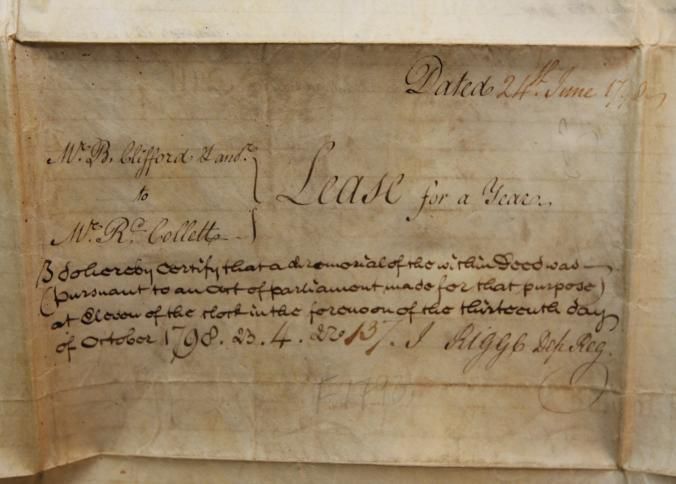 Dated 24th June 1798
Mr. B. Clifford & anr.
to
Mr. Rd. Collett
Lease for a Year.
I do hereby Certify that a Memorial of the within Deed was
(pursuant to an Act of parliament made for that purpose)
at Eleven of the Clock in the forenoon of the thirteenth day
of October 1798. B. 4. No 137. J RIGGE Dep Reg.